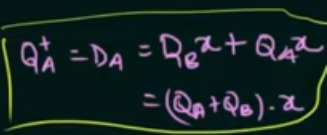 Q_A^+ = D_A = Q_B x + Q_A x
= (Q_A + Q_B) . x